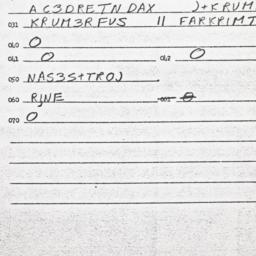 A C3DRETN DAX )+KRUM
031 KRUM3RFUS 11 FARKRIMT
040 0
041 0 042 0
050 NAS3S+TROJ
060 RJNE 061 0
070 0